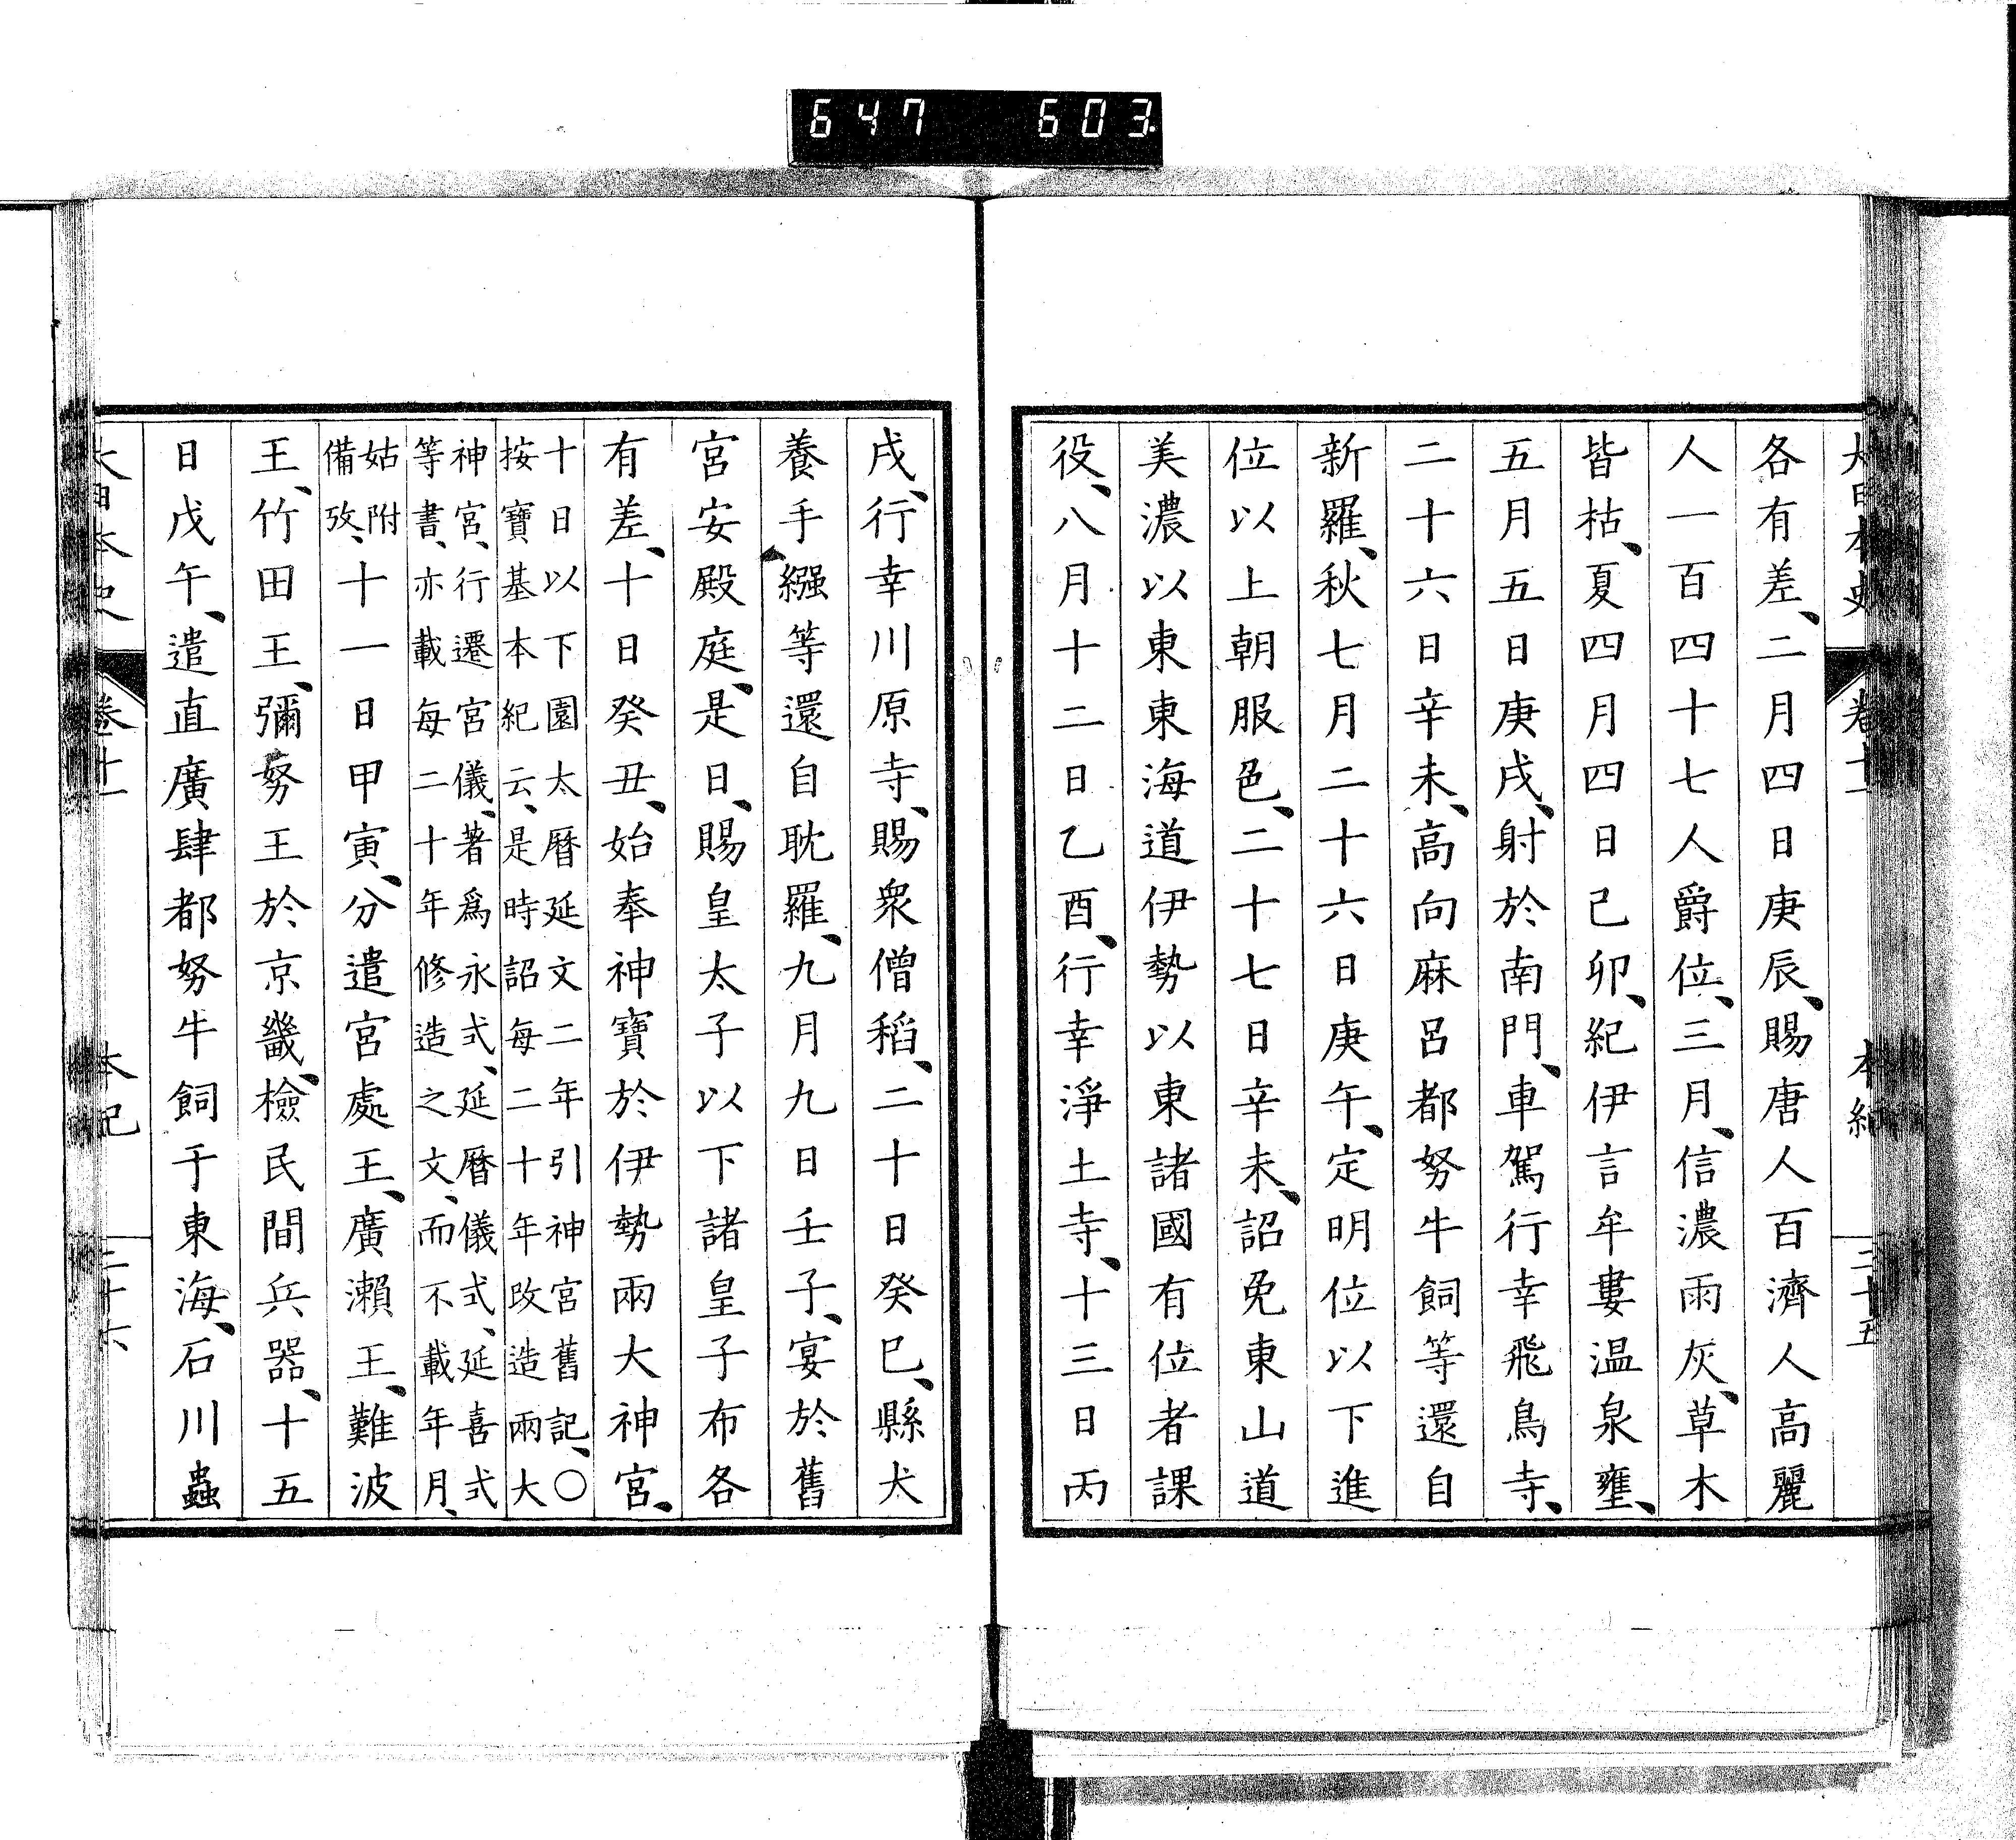 647 603
大日本史 卷十一 本紀 三十五
各有差、二月四日庚辰、賜唐人百濟人高麗
人一百四十七人爵位、三月、信濃雨灰、草木
皆枯、夏四月四日己卯、紀伊言牟婁温泉壅、
五月五日庚戌、射於南門、車駕行幸飛鳥寺、
二十六日辛未、高向麻呂都努牛飼等還自
新羅、秋七月二十六日庚午、定明位以下進
位以上朝服色、二十七日辛未、詔免東山道
美濃以東東海道伊勢以東諸國有位者課
役、八月十二日乙酉、行幸淨土寺、十三日丙
戌、行幸川原寺、賜衆僧稻、二十日癸巳、縣犬
養手繦等還自耽羅、九月九日壬子、宴於舊
宮安殿庭、是日、賜皇太子以下諸皇子布各
有差、十日癸丑、始奉神寶於伊勢兩大神宮、
十日以下園太曆延文二年引神宮舊記、〇
按寶基本紀云、是時詔每二十年改造兩大
神宮、行遷宮儀、著爲永式、延曆儀式、延喜式
等書、亦載每二十年修造之文、而不載年月、
姑附
備攷、十一日甲寅、分遣宮處王、廣瀨王、難波
王、竹田王、彌努王於京畿、檢民間兵器、十五
日戊午、遣直廣肆都努牛飼于東海、石川蟲
大日本史 卷十一 本紀 三十六